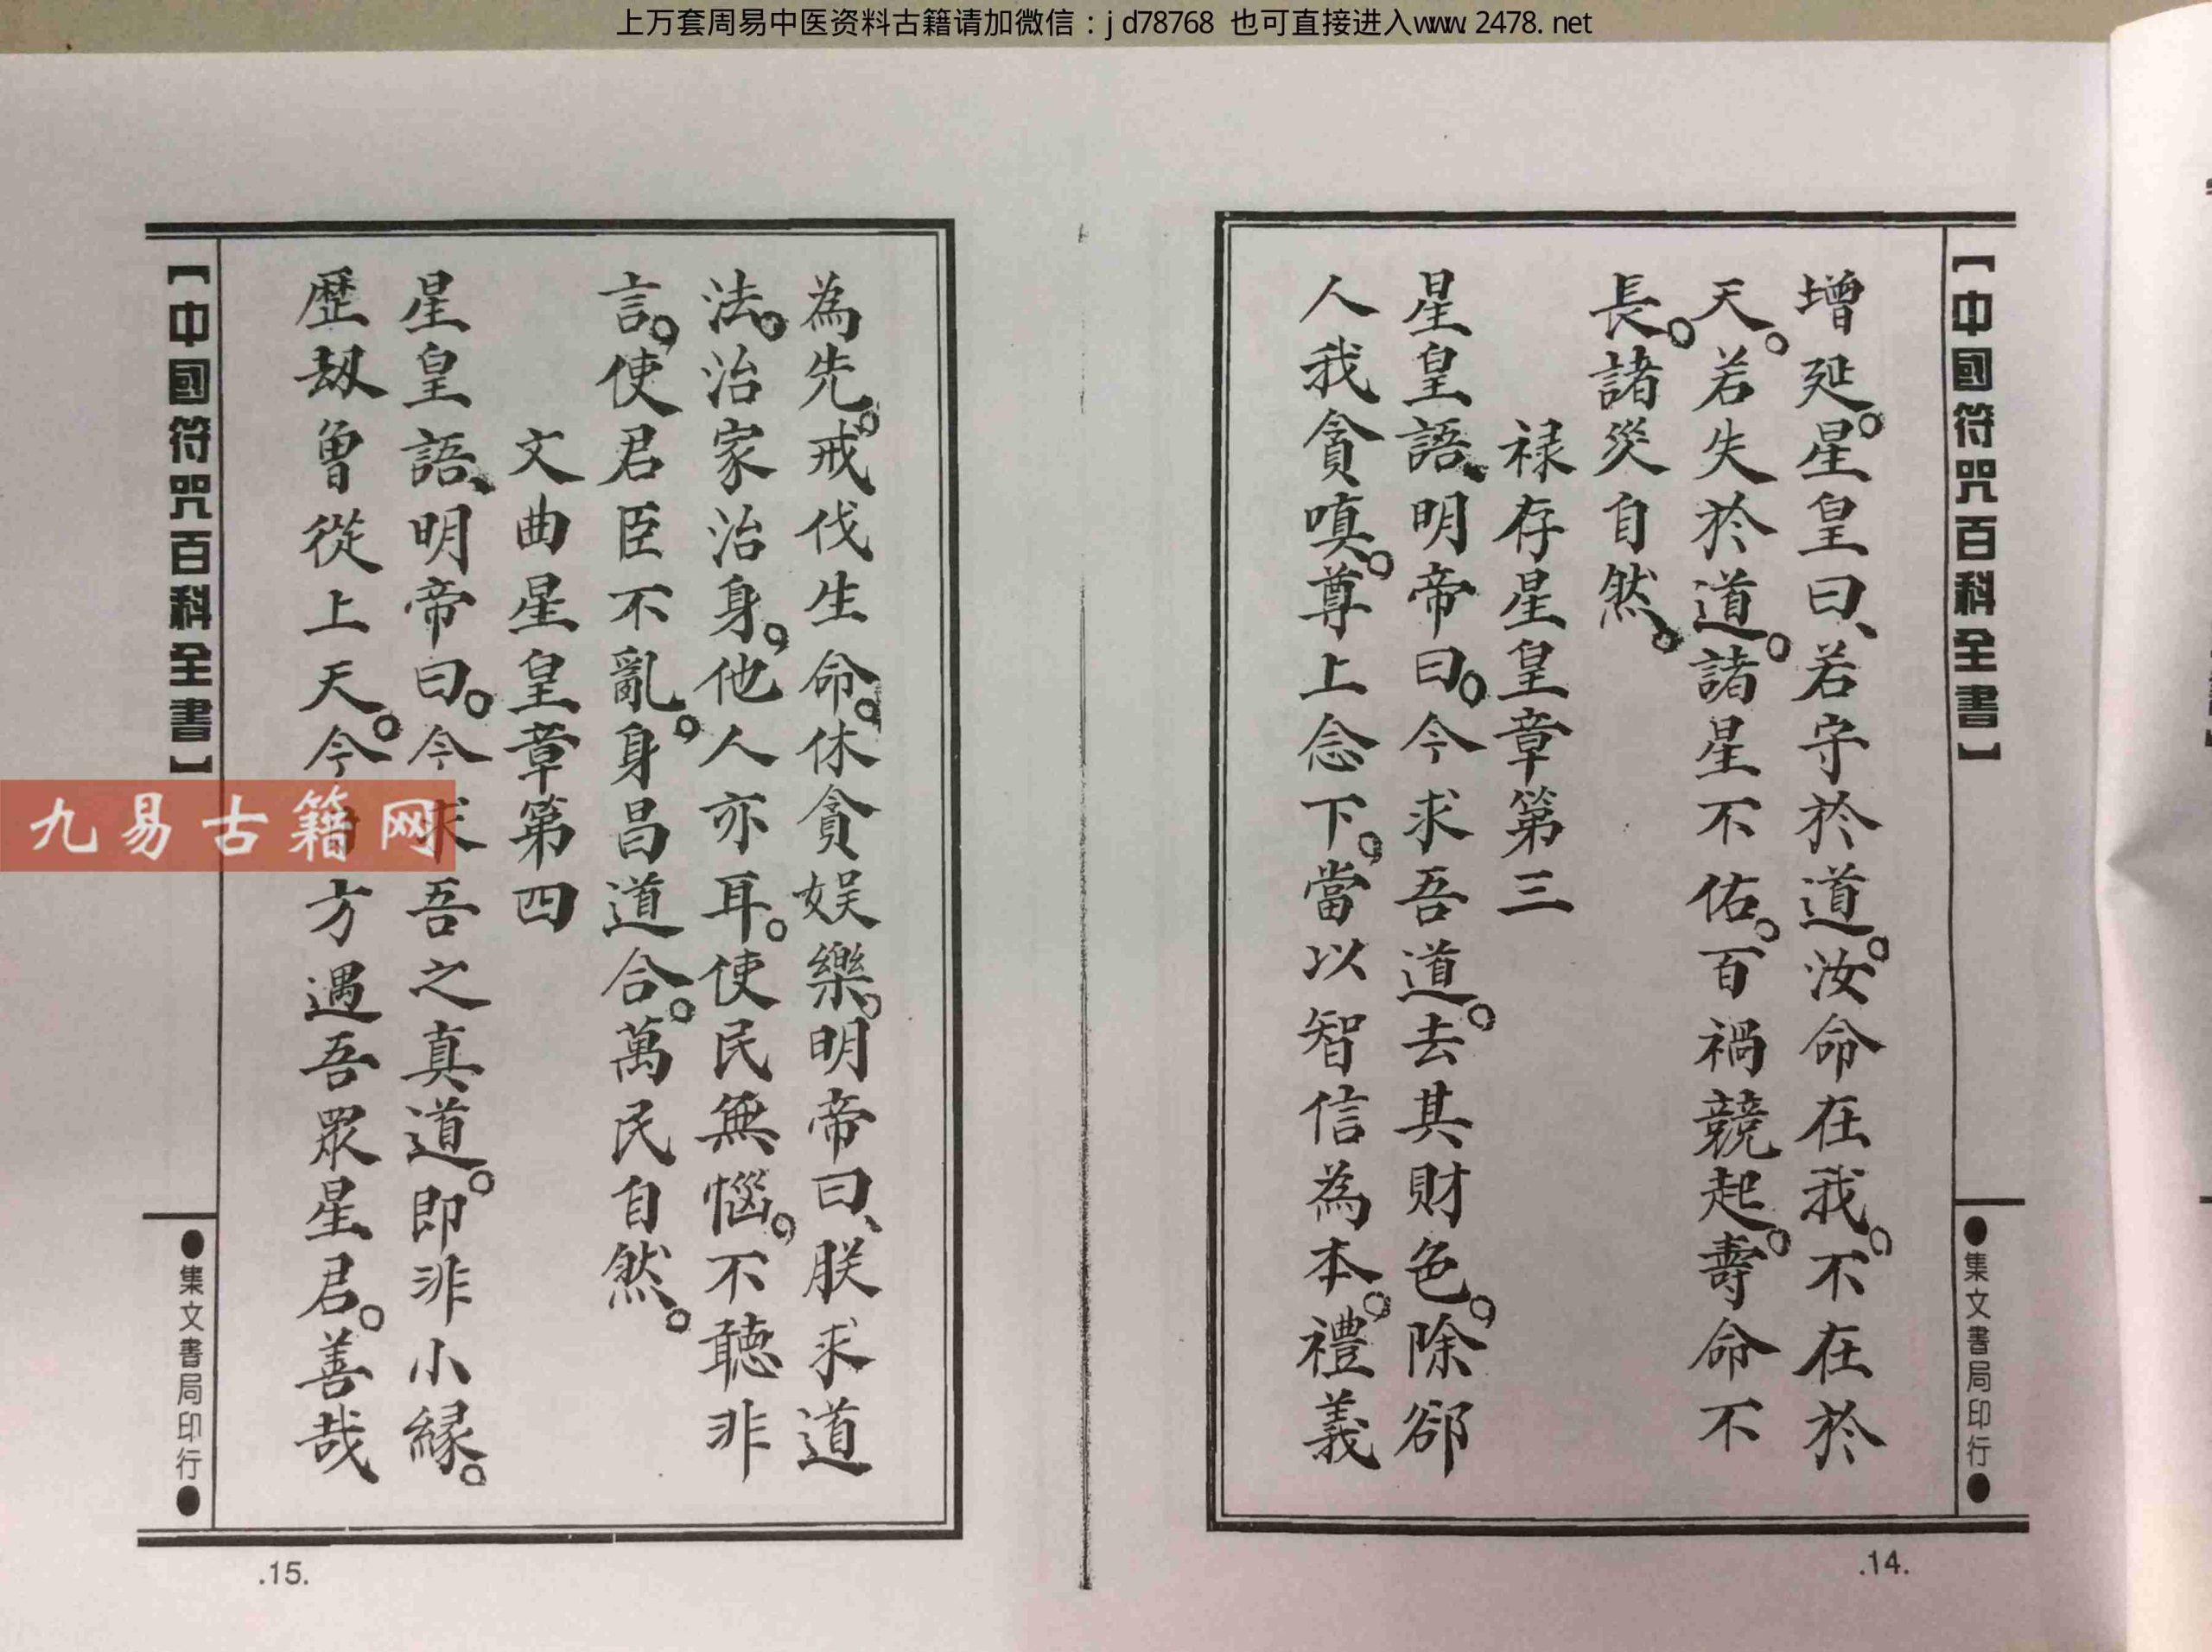 上万套周易中医资料古籍请加微信：jd78768 也可直接进入www.2478.net
【中國符咒百科全書】
●集文書局印行●
增延。星皇曰、若守於道。汝命在我。不在於
天。若失於道。諸星不佑。百禍競起。壽命不
長。諸災自然。
禄存星皇章第三
星皇語、明帝曰。今求吾道。去其財色。除郤
人我貪嗔。尊上念下。當以智信為本。禮義
.14.
為先。戒伐生命。休貪娱樂。明帝曰、朕求道
法。治家治身。他人亦耳。使民無惱。不聽非
言。使君臣不亂。身昌道合。萬民自然。
文曲星皇章第四
星皇語、明帝曰。今求吾之真道。即非小緣。
歷劫曾從上天。今方遇吾眾星君。善哉
【中國符咒百科全書】
●集文書局印行●
.15.
九易古籍网